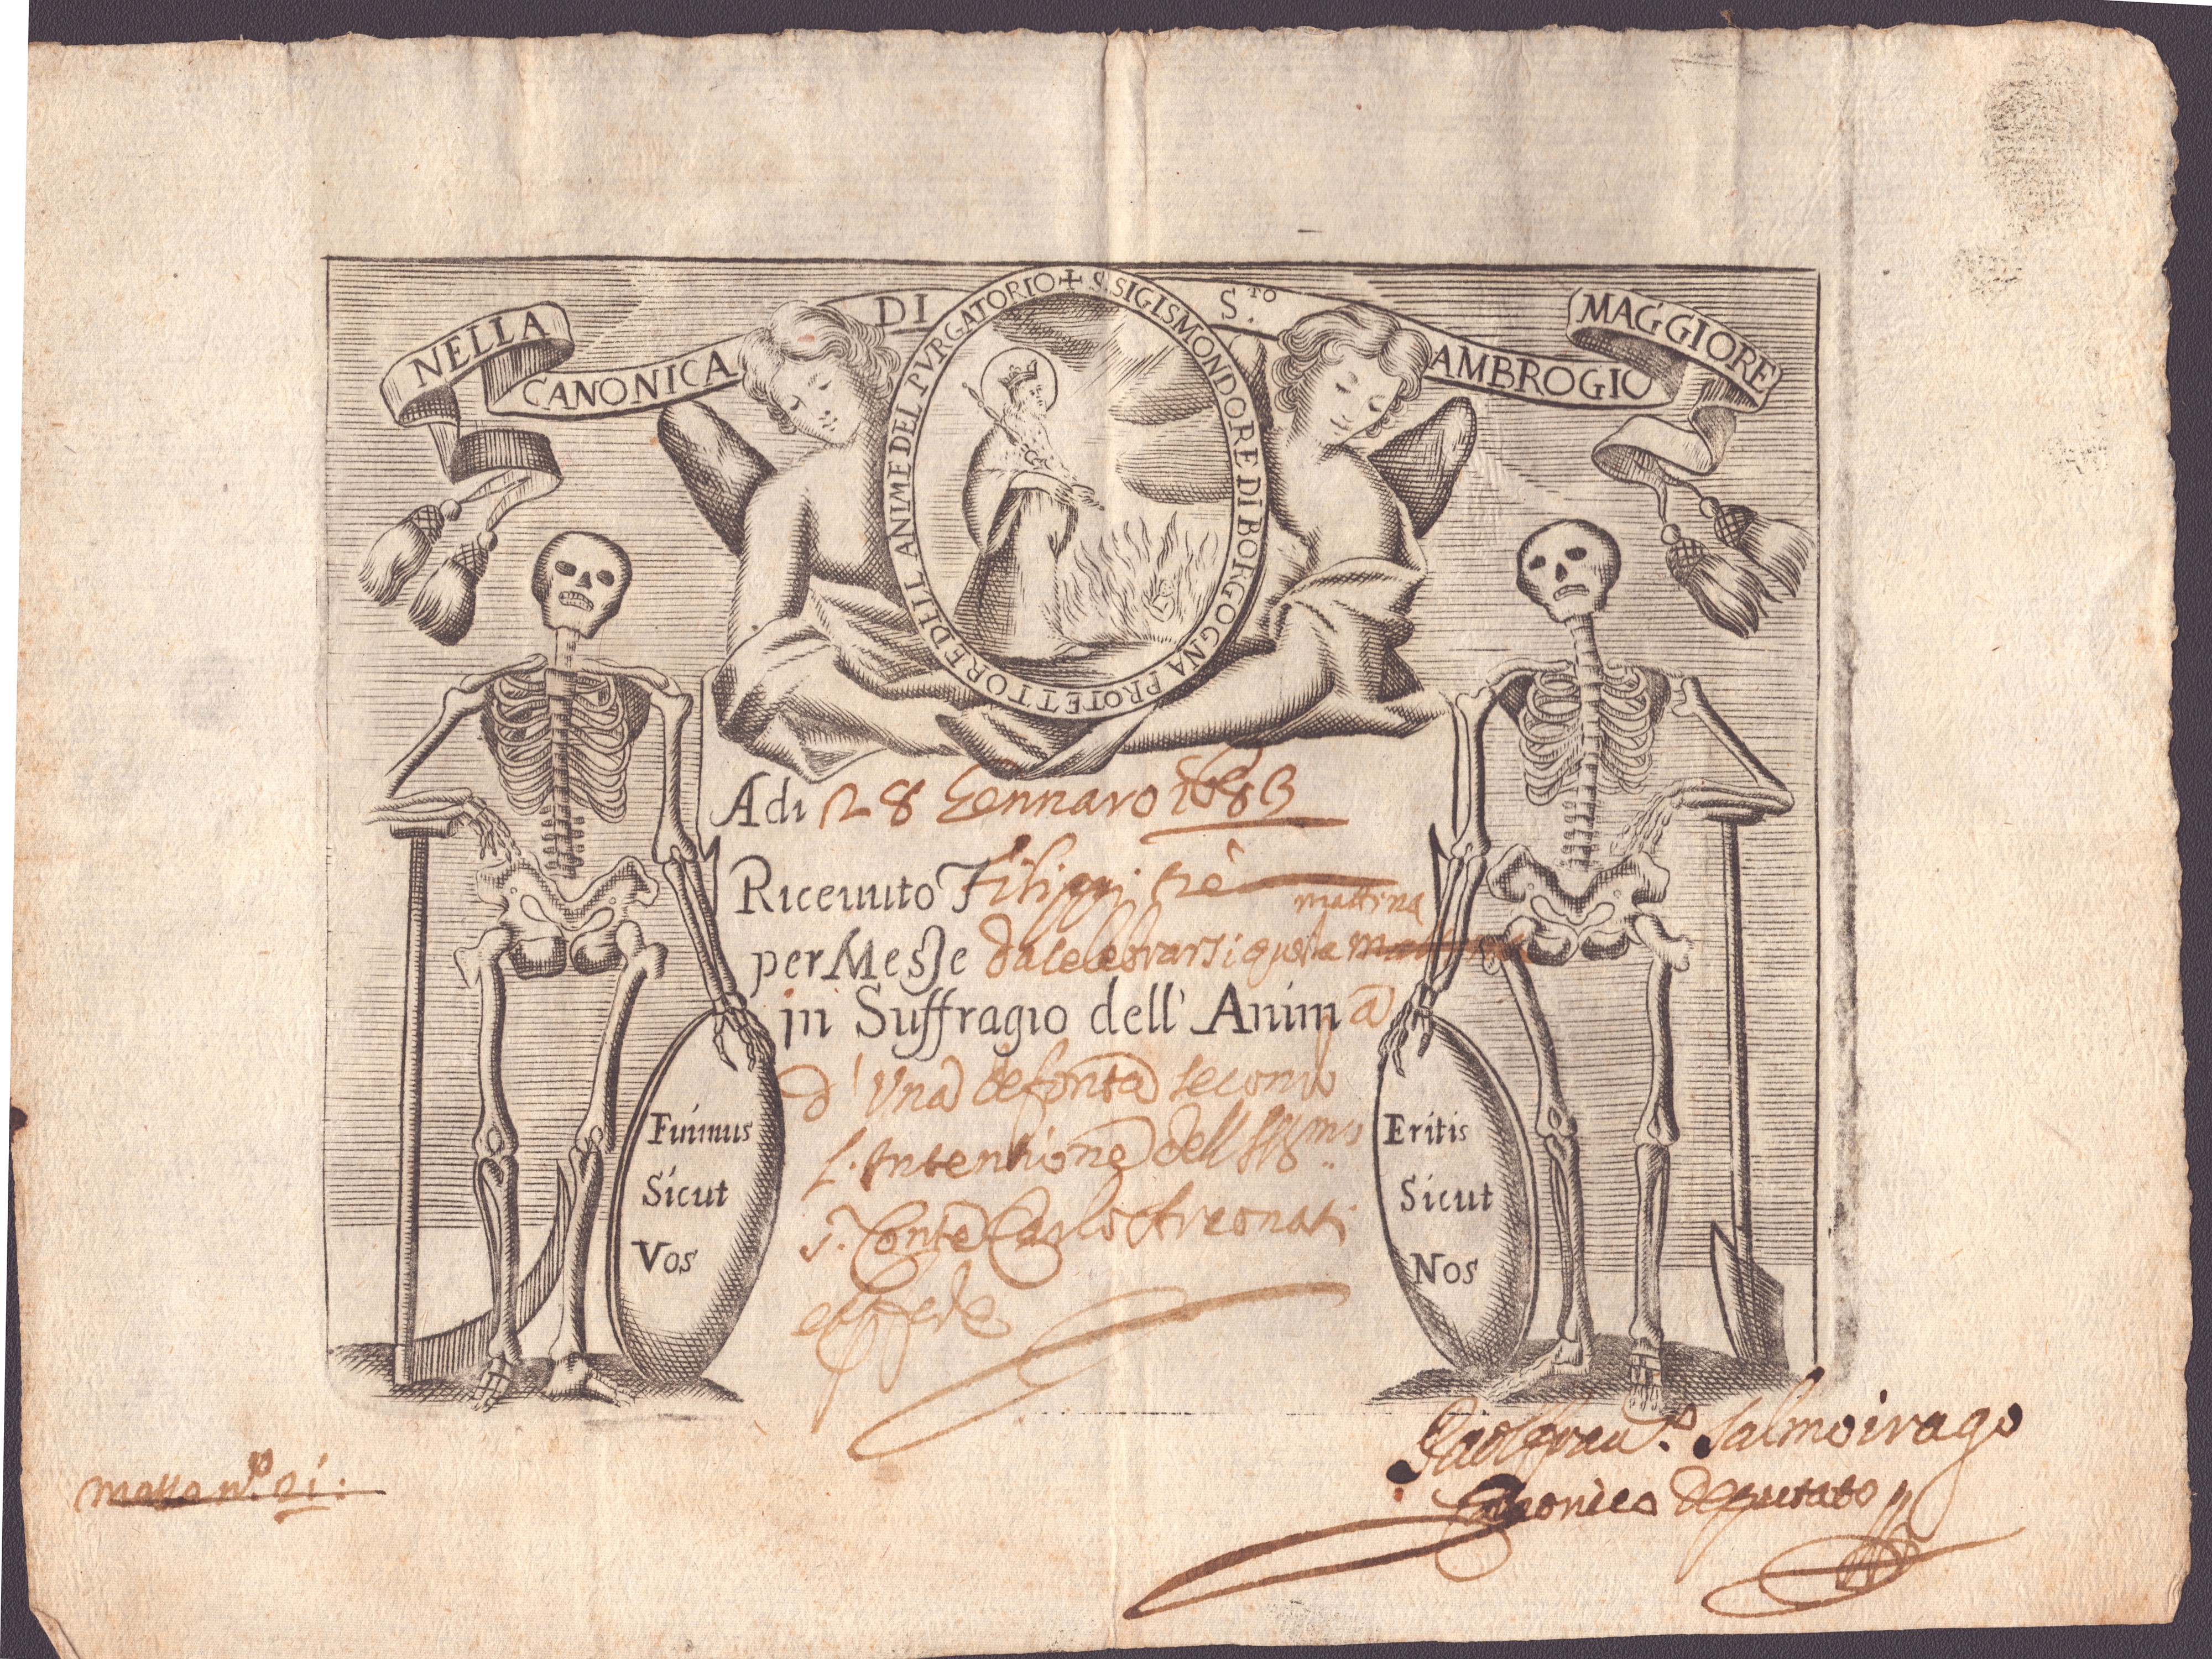 NELLA CANONICA DI S.TO AMBROGIO MAGGIORE
+ S. SIGISMONDO RE DI BORGOGNA PROTETTORE DELL ANIME DEL PVRGATORIO
Adi 28 Gennaro 1683
Riceuuto Filippi trè
mattina
per Messe da celebrarsi questa
in Suffragio dell' Anima
d' Una defonta secondo
l' Intentione dell Ill.mo
S.r Conte Carlo Areonati
Fuimus
Sicut
Vos
Eritis
Sicut
Nos
Salmoirago
Canonico Deputato